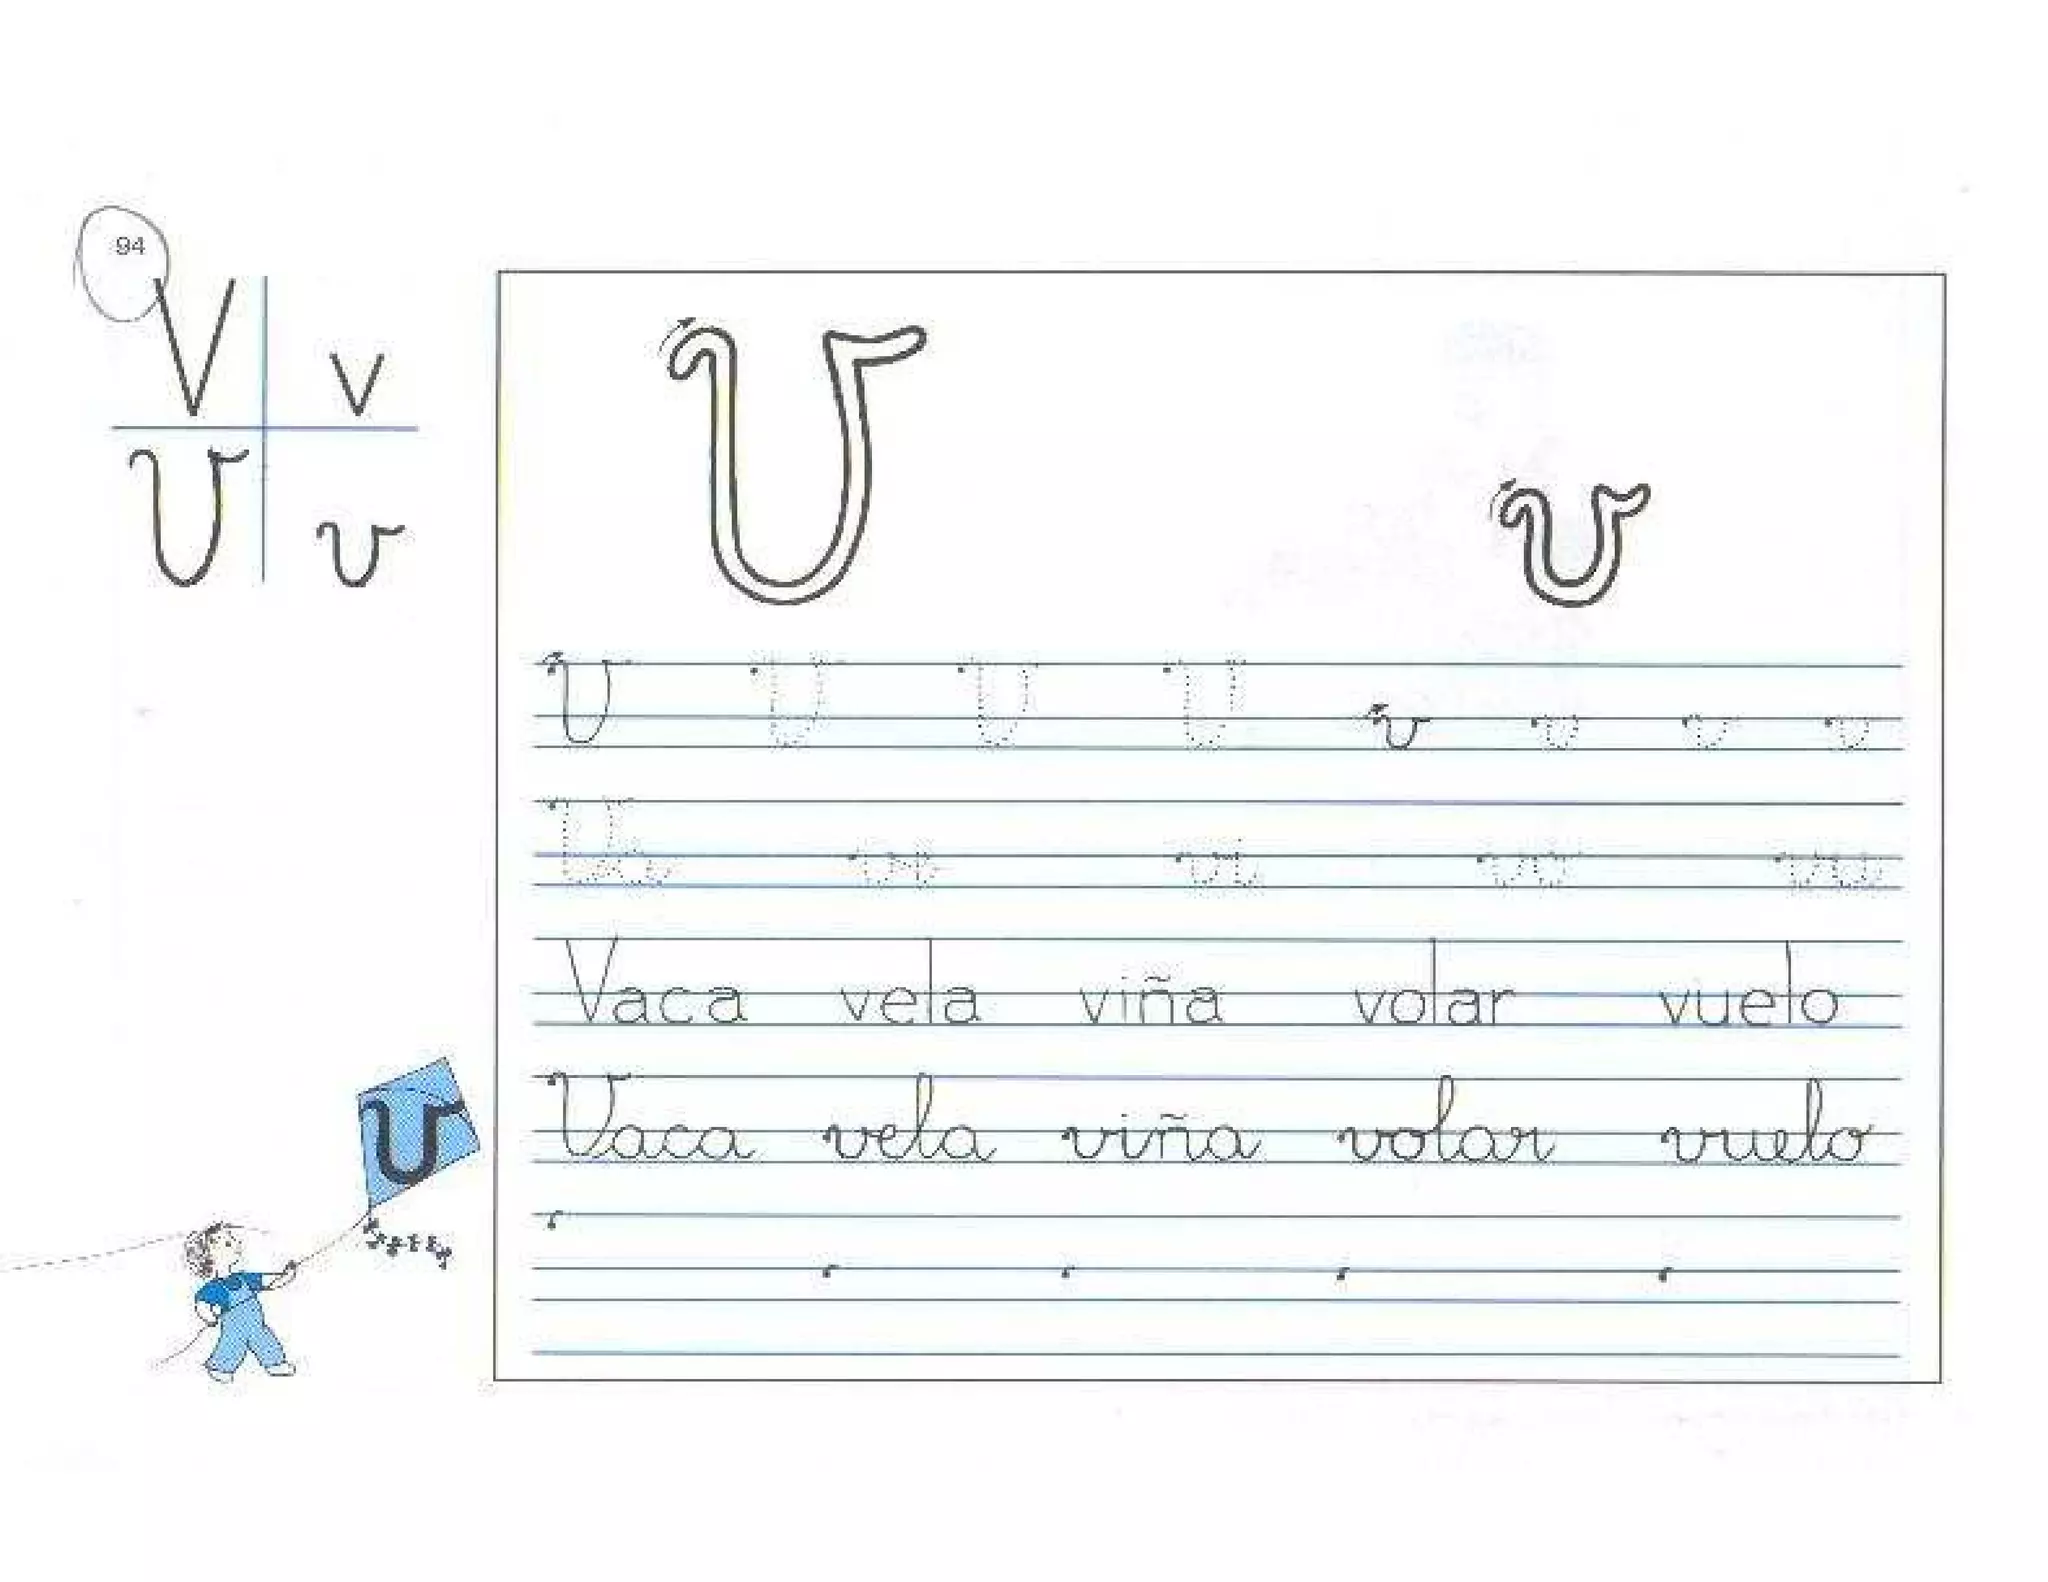 94
V v
V v
V v
V V V V v v v v
Va ve vi vo vu
Vaca vela viña volar vuelo
Vaca vela viña volar vuelo
v